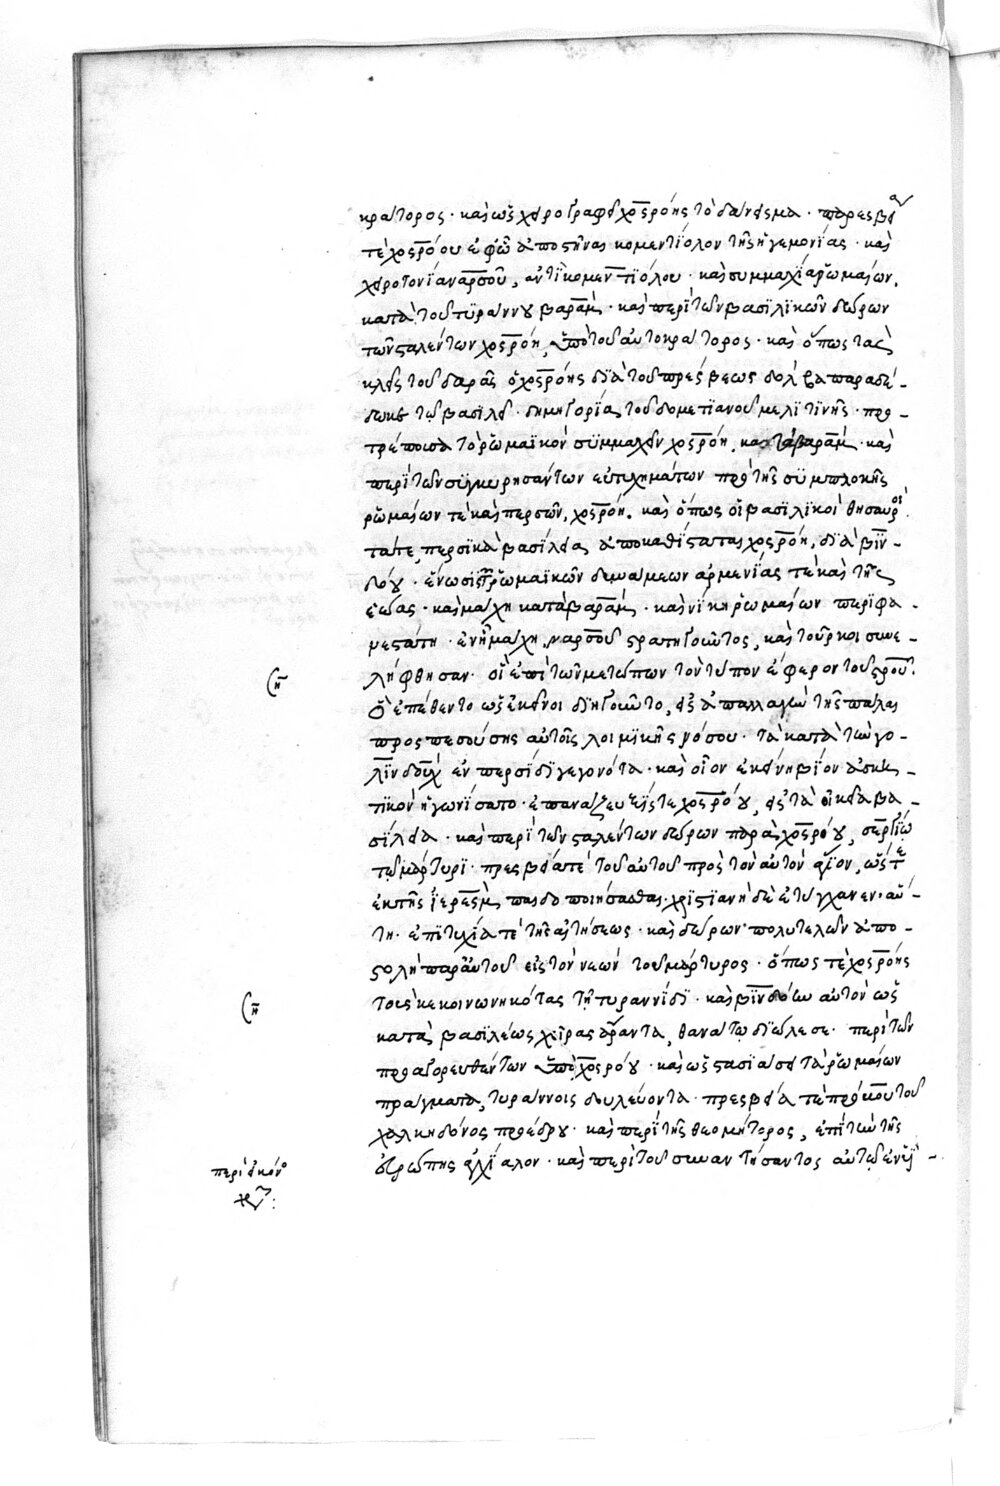 κράτορος· καὶ ὡς χειρογραφεῖ χοσρόης τὸ δάνεισμα· πρεσβεία
τὲ χοσρόου ἐφῶ ἀποστῆναι κομεντίολον τῆς ἡγεμονίας· καὶ
χειροτονία ναρσοῦ, ἀντὶ κομεντιόλου· καὶ συμμαχία ῥωμαίων,
κατὰ τοῦ τυράννου βαράμ· καὶ περὶ τῶν βασιλικῶν δώρων
τῶν σταλέντων χοσρόη, ὑπὸ τοῦ αὐτοκράτορος· καὶ ὅπως τὰς
κλεῖς τοῦ δαρὰς ὁ χοσρόης διὰ τοῦ πρέσβεως δολαβζὰ παραδέ-
δωκε τῷ βασιλεῖ· δημηγορία τοῦ δομετιανοῦ μελιτινῆς· προ-
τρέπουσα τὸ ῥωμαϊκὸν συμμαχεῖν χοσρόη, κατὰ βαράμ· καὶ
περὶ τῶν συγκυρησάντων εὐτυχημάτων πρὸ τῆς συμπλοκῆς
ῥωμαίων τὲ καὶ περσῶν, χοσρόη. καὶ ὅπως οἱ βασιλικοὶ θησαυροὶ
τά τε περσικὰ βασίλεια ἀποκαθίσταται χοσρόη, διὰ βιν-
δόου· ἕνωσις τῶν ῥωμαϊκῶν δυνάμεων ἀρμενίας τὲ καὶ τῆς
ἑώας· καὶ μάχη κατὰ βαράμ· καὶ νίκη ῥωμαίων περιφα-
νεστάτη· ἐν ᾗ μάχη ναρσοῦ στρατηγοῦντος, καὶ τοῦρκοι συνε-
λήφθησαν· οἳ ἐπὶ τῶν μετώπων τὸν τύπον ἔφερον τοῦ σταυροῦ.
ὃ ἐπέθεντο ὡς ἐκεῖνοι διηγοῦντο, εἰς ἀπαλλαγὴν τῆς πάλαι
προσπεσούσης αὐτοῖς λοιμικῆς νόσου· τὰ κατὰ τὴν γο-
λινδοὺχ ἐν περσίδι γεγονότα· καὶ οἷον ἐκείνη βίον ἀσκη-
τικὸν ἠγωνίσατο· ἐπανάζευξίς τε χοσρόου, εἰς τὰ οἰκεῖα βα-
σίλεια· καὶ περὶ τῶν σταλέντων δώρων παρὰ χοσρόου, σεργίῳ
τῷ μάρτυρι· πρεσβεία τὲ τοῦ αὐτοῦ πρὸς τὸν αὐτὸν ἅγιον, ὥστε
ἐκ τῆς σιρὲμ παιδοποιήσασθαι· χριστιανὴ δὲ ἐτύγχανεν αὕ-
τη· ἐπιτυχία τὲ τῆς αἰτήσεως· καὶ δώρων πολυτελῶν ἀπο-
στολὴ παρ' αὐτοῦ εἰς τὸν νεὼν τοῦ μάρτυρος· ὅπως τὲ χοσρόης
τοὺς κεκοινωνηκότας τῇ τυραννίδι· καὶ βινδόην αὐτὸν ὡς
κατὰ βασιλέως χεῖρας ἄραντα, θανάτῳ διώλεσε· περὶ τῶν
προαγορευθέντων ὑπὸ χοσρόου· καὶ ὡς στασιάσει τὰ ῥωμαίων
πράγματα, τυράννοις δουλεύοντα· πρεσβεία τὲ πρόβου τοῦ
χαλκηδόνος προέδρου· καὶ περὶ τῆς θεομήτορος, ἐπὶ τὴν τῆς
εὐρώπης ἀγχίαλον· καὶ περὶ τοῦ συναντήσαντος αὐτῷ ἐν ἡ-
ση
ση
περὶ εἰκόνο